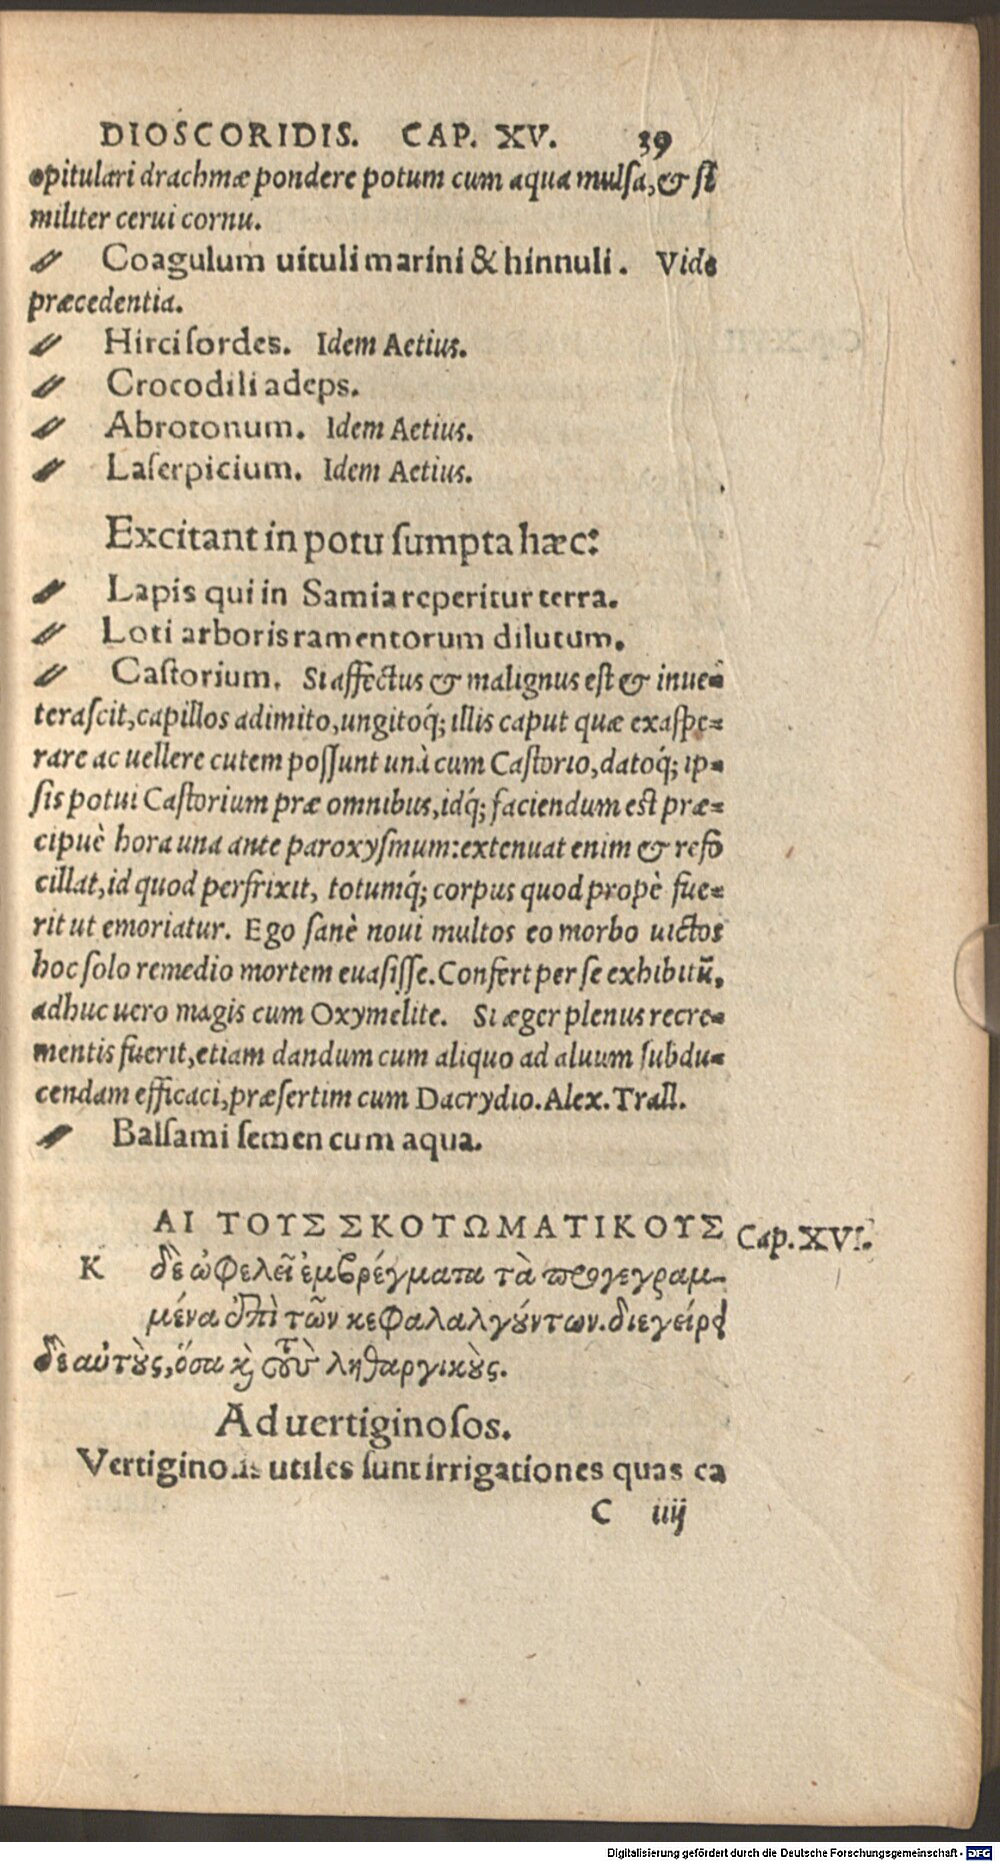 DIOSCORIDIS. CAP. XV. 39
opitulari drachmæ pondere potum cum aqua mulsa, & si
militer cerui cornu.
Coagulum uituli marini & hinnuli. Vide
præcedentia.
Hirci sordes. Idem Aetius.
Crocodili adeps.
Abrotonum. Idem Aetius.
Laserpicium. Idem Aetius.
Excitant in potu sumpta hæc:
Lapis qui in Samia reperitur terra.
Loti arboris ramentorum dilutum.
Castorium. Si affectus & malignus est & inue-
terascit, capillos adimito, ungitoq́; illis caput quæ exaspe-
rare ac uellere cutem possunt unà cum Castorio, datoq́; ip-
sis potui Castorium præ omnibus, idq́; faciendum est præ-
cipuè hora una ante paroxysmum: extenuat enim & refo
cillat, id quod perfrixit, totumq́; corpus quod propè fue-
rit ut emoriatur. Ego sanè noui multos eo morbo uictos
hoc solo remedio mortem euasisse. Confert per se exhibitū,
adhuc uero magis cum Oxymelite. Si æger plenus recre-
mentis fuerit, etiam dandum cum aliquo ad aluum subdu-
cendam efficaci, præsertim cum Dacrydio. Alex. Trall.
Balsami semen cum aqua.
ΑΙ ΤΟΥΣ ΣΚΟΤΩΜΑΤΙΚΟΥΣ Cap. XVI.
Κ δὲ ὠφελεῖ ἐμβρέγματα τὰ προγεγραμ-
μένα ἐπὶ τῶν κεφαλαλγούντων. διεγείρει
δὲ αὐτοὺς, ὅσα καὶ τοὺς ληθαργικοὺς.
Ad uertiginosos.
Vertiginosis utiles sunt irrigationes quas ca
C iiij
Digitalisierung gefördert durch die Deutsche Forschungsgemeinschaft - DFG